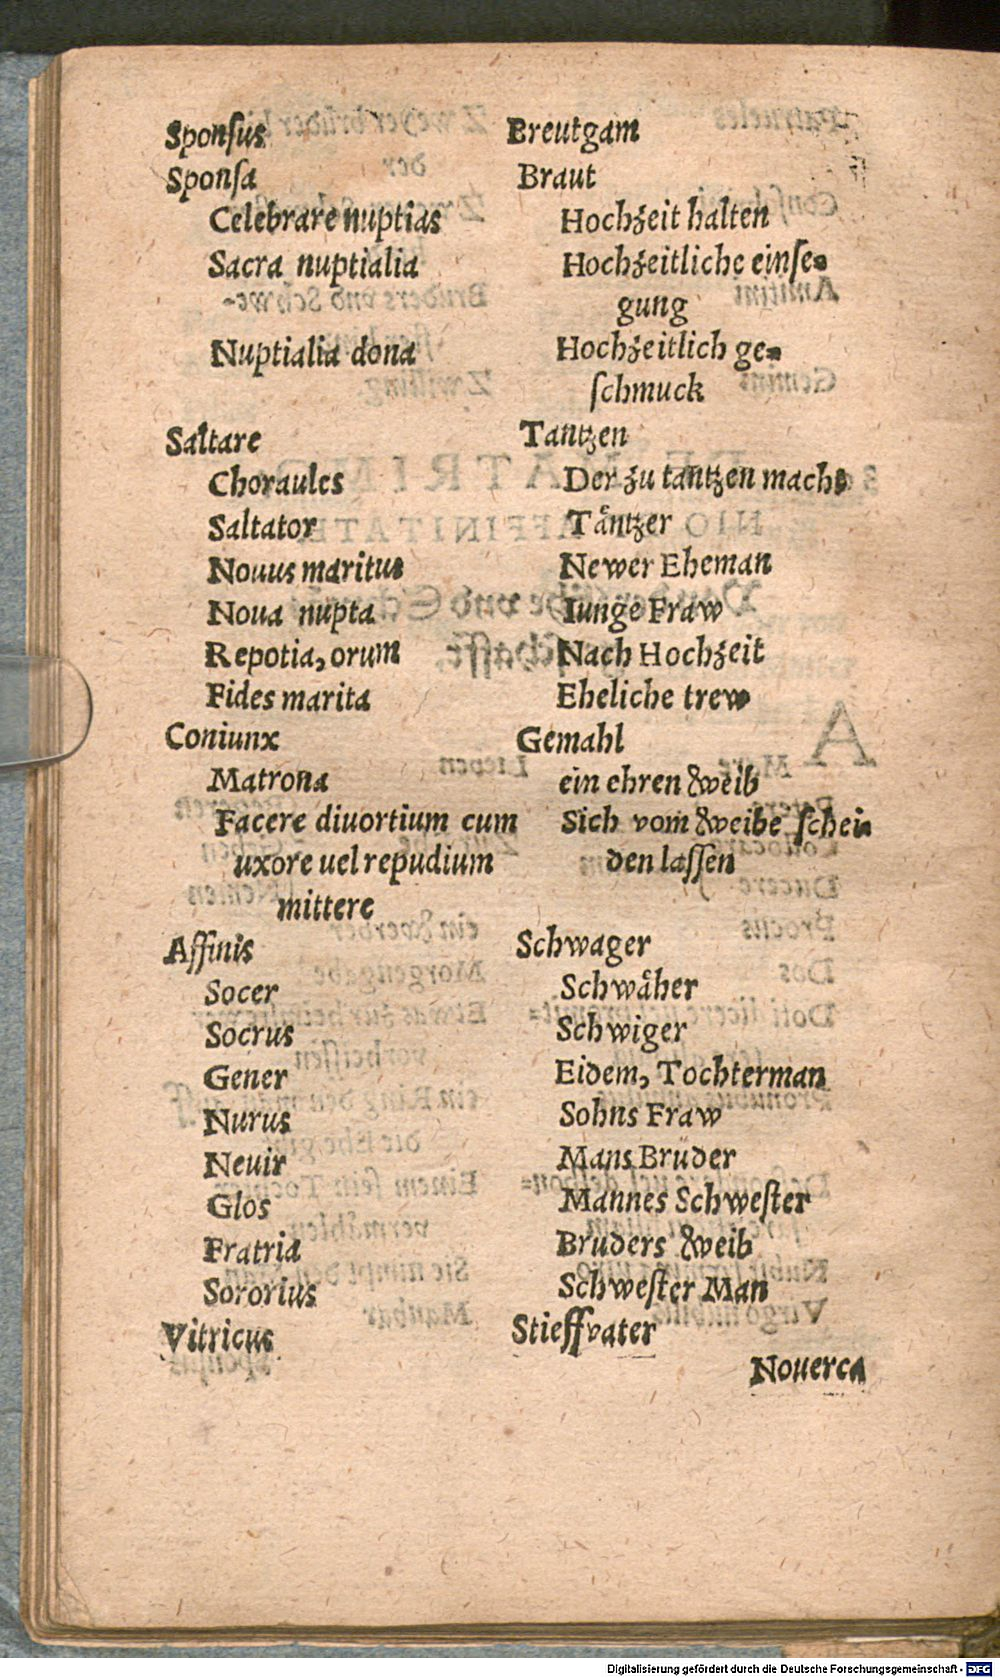 Sponſus Breutgam
Sponſa Braut
Celebrare nuptias Hochzeit halten
Sacra nuptialia Hochzeitliche einſe-
gung
Nuptialia dona Hochzeitlich ge-
ſchmuck
Saltare Tantzen
Choraules Der zu tantzen macht
Saltator Täntzer
Nouus maritus Newer Eheman
Noua nupta Iunge Fraw
Repotia, orum Nach Hochzeit
Fides marita Eheliche trew
Coniunx Gemahl
Matrona ein ehren weib
Facere diuortium cum Sich vom weibe ſchei
uxore uel repudium den laſſen
mittere
Affinis Schwager
Socer Schwäher
Socrus Schwiger
Gener Eidem, Tochterman
Nurus Sohns Fraw
Neuir Mans Bruder
Glos Mannes Schweſter
Fratria Bruders weib
Sororius Schweſter Man
Vitricus Stieffvater
Nouerca
Digitalisierung gefördert durch die Deutsche Forschungsgemeinschaft - DFG